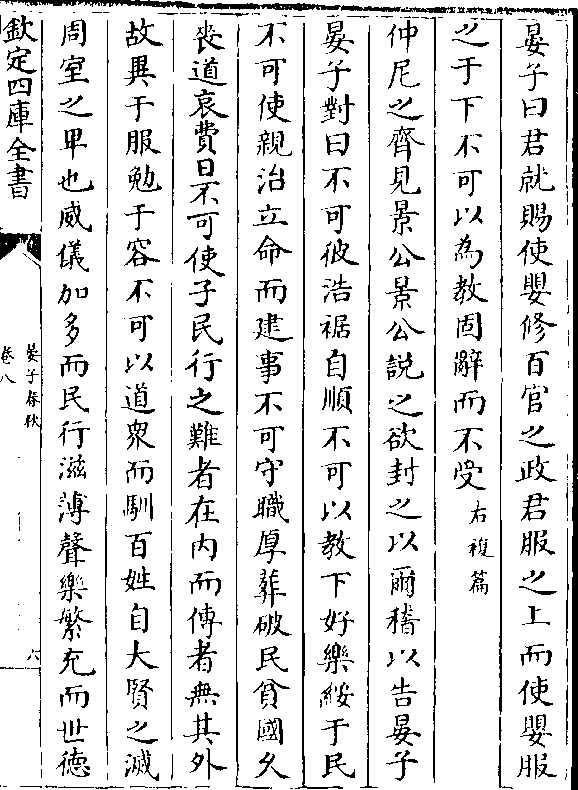 晏子曰君就賜使嬰修百官之政君服之上而使嬰服
之于下不可以為教固辭而不受右複篇
仲尼之齊見景公景公說之欲封之以爾稽以告晏子
晏子對曰不可彼浩裾自順不可以教下好樂綏于民
不可使親治立命而建事不可守職厚葬破民貧國久
喪道哀費日不可使子民行之難者在内而傳者無其外
故異于服勉于容不可以道衆而馴百姓自大賢之滅
周室之卑也威儀加多而民行滋薄聲樂繁充而世德
欽定四庫全書
晏子春秋
卷八
六